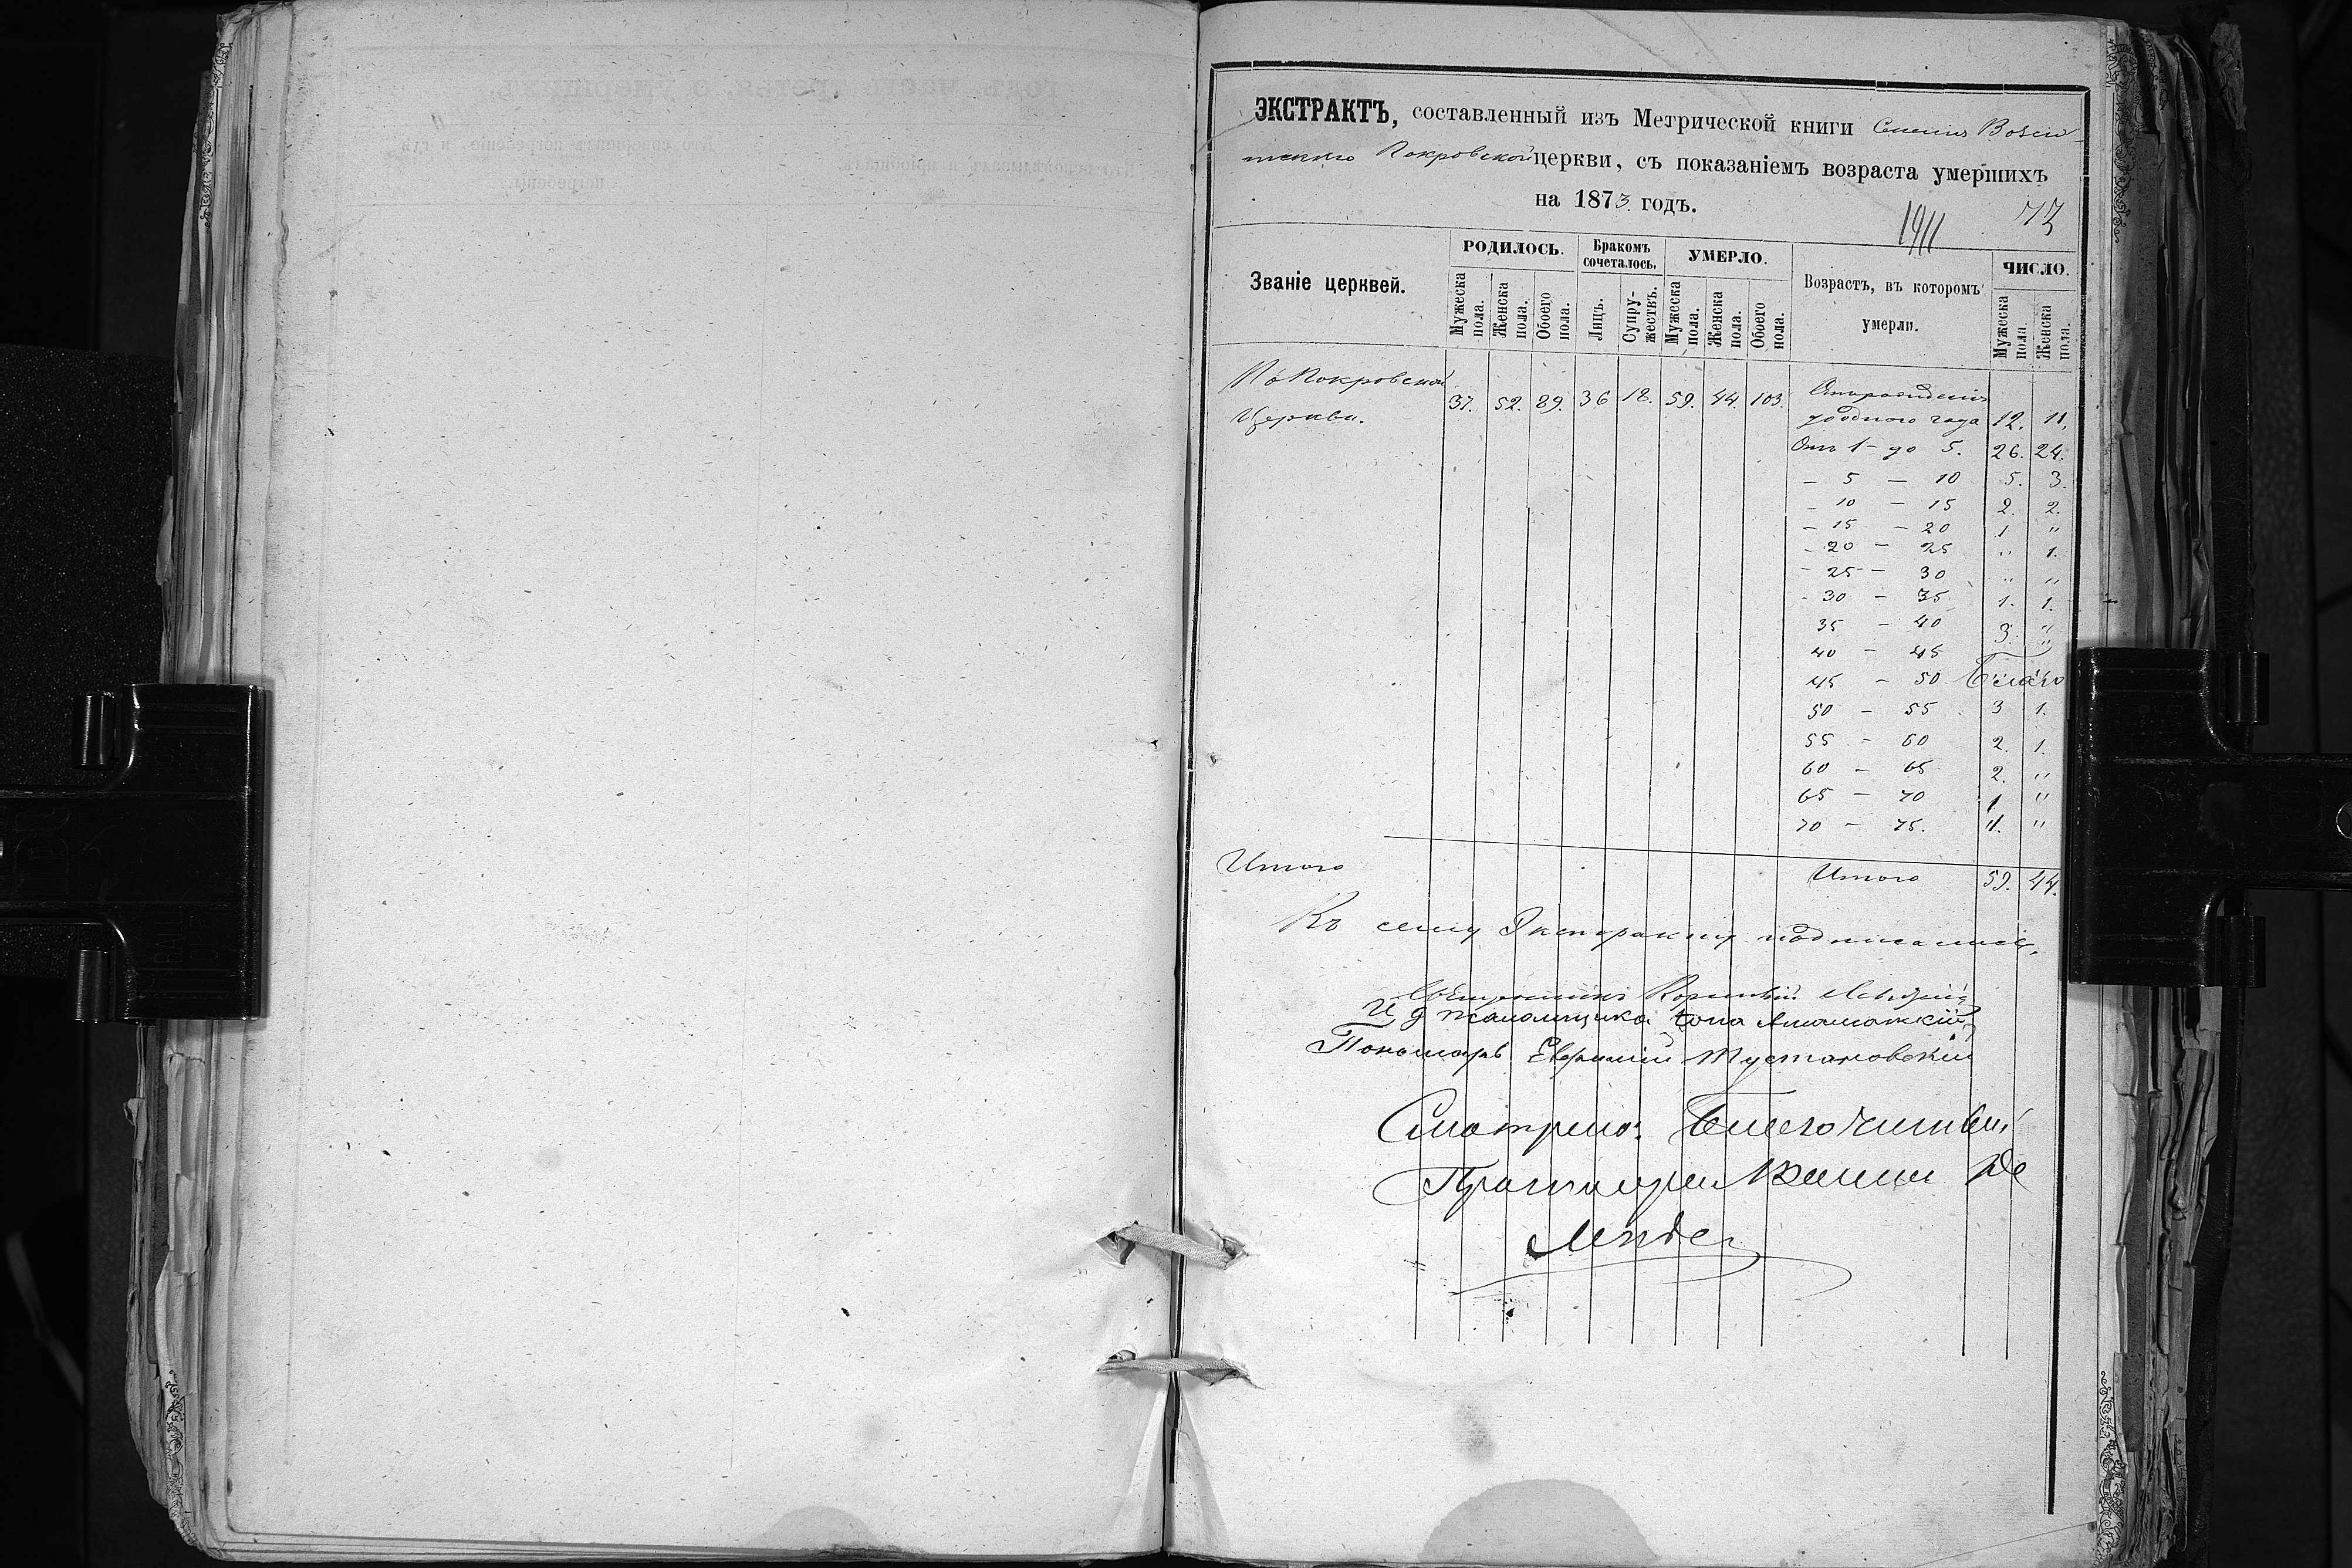 ЭКСТРАКТЪ, составленный изъ Метрической книги
Покровской церкви, съ показаніемъ возраста умершихъ
на 1873 годъ.
1911
Званіе церквей.
РОДИЛОСЬ.
Мужеска пола.
Женска пола.
Обоего пола.
Бракомъ сочеталось.
Лицъ.
Супружествъ.
УМЕРЛО.
Мужеска пола.
Женска пола.
Обоего пола.
Возрастъ, въ которомъ
умерли.
ЧИСЛО.
Мужеска пола.
Женска пола.
По Покровской
Церкви.
37. 52. 89. 36 18. 59. 44. 103.
Отъ рожденія
до одного года 12. 11.
Отъ 1 - до 5. 26. 24.
- 5 - 10 5. 3.
- 10 - 15 2. 2.
- 15 - 20 1 "
- 20 - 25 " 1.
- 25 - 30 " "
- 30 - 35 1. 1.
35 - 40 3. "
40 - 45
45 - 50
50 - 55 3 1.
55 - 60 2. 1.
60 - 65 2. "
65 - 70 1 "
70 - 75. "
Итого
Итого 59. 44.
Къ сему Экстракту подписались,
Священникъ
И. д. псаломщика
Пономарь Евфимій
Смотрелъ: Благочинный
Протоіерей